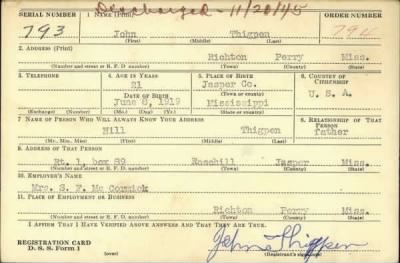 Discharged - 11/20/45
SERIAL NUMBER 1. NAME (Print) ORDER NUMBER
793 John Thigpen 794
(First) (Middle) (Last)
2. ADDRESS (Print)
Richton Perry Miss.
(Number and street or R. F. D. number) (Town) (County) (State)
3. TELEPHONE 4. AGE IN YEARS 5. PLACE OF BIRTH 6. COUNTRY OF CITIZENSHIP
21 Jasper Co.
DATE OF BIRTH (Town or county)
June 8, 1919 Mississippi U. S. A.
(Exchange) (Number) (Mo.) (Day) (Yr.) (State or country)
7. NAME OF PERSON WHO WILL ALWAYS KNOW YOUR ADDRESS 8. RELATIONSHIP OF THAT PERSON
Will Thigpen father
(Mr., Mrs., Miss) (First) (Middle) (Last)
9. ADDRESS OF THAT PERSON
Rt. 1, box 89 Rosehill Jasper Miss.
(Number and street or R. F. D. number) (Town) (County) (State)
10. EMPLOYER'S NAME
Mrs. S. F. Mc Cormick
11. PLACE OF EMPLOYMENT OR BUSINESS
Richton Perry Miss.
(Number and street or R. F. D. number) (Town) (County) (State)
I AFFIRM THAT I HAVE VERIFIED ABOVE ANSWERS AND THAT THEY ARE TRUE.
REGISTRATION CARD John Thigpen
D. S. S. Form 1 (over) (Registrant's signature)